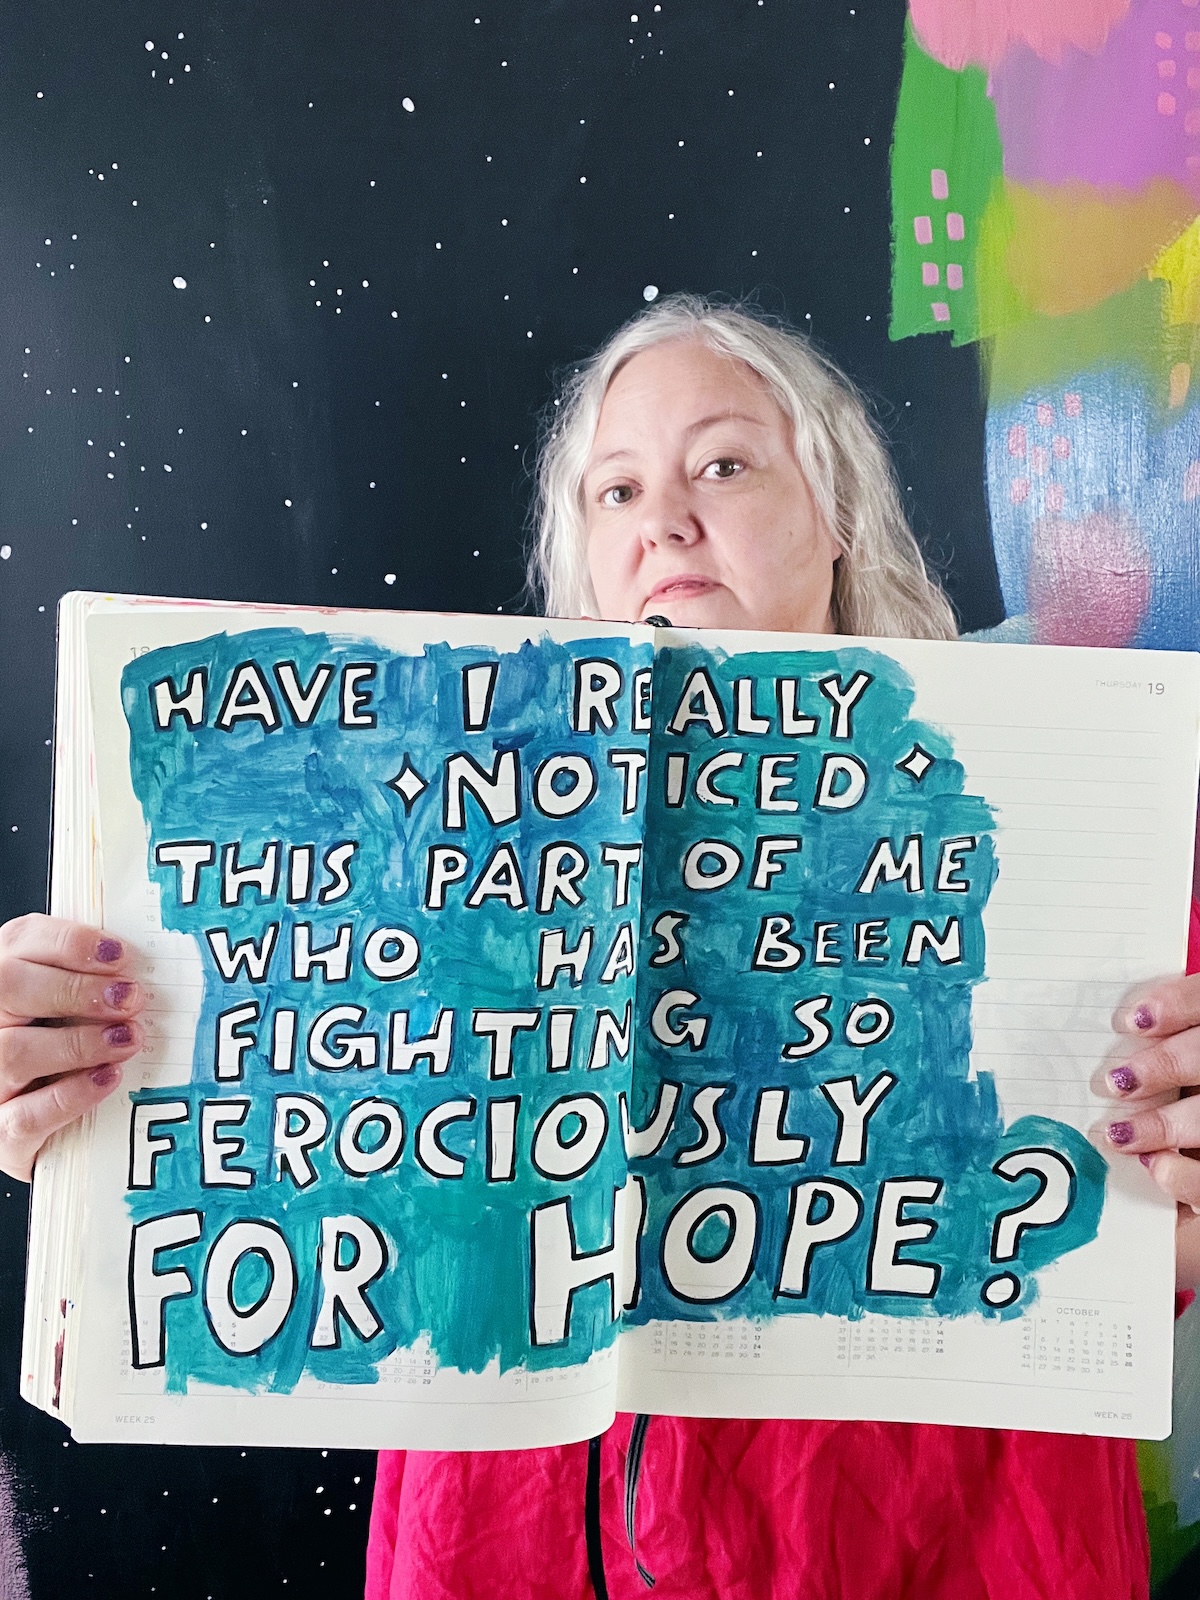 18
THURSDAY 19
HAVE I REALLY
NOTICED
THIS PART OF ME
WHO HAS BEEN
FIGHTING SO
FEROCIOUSLY
FOR HOPE?
OCTOBER
WEEK 25
WEEK 25